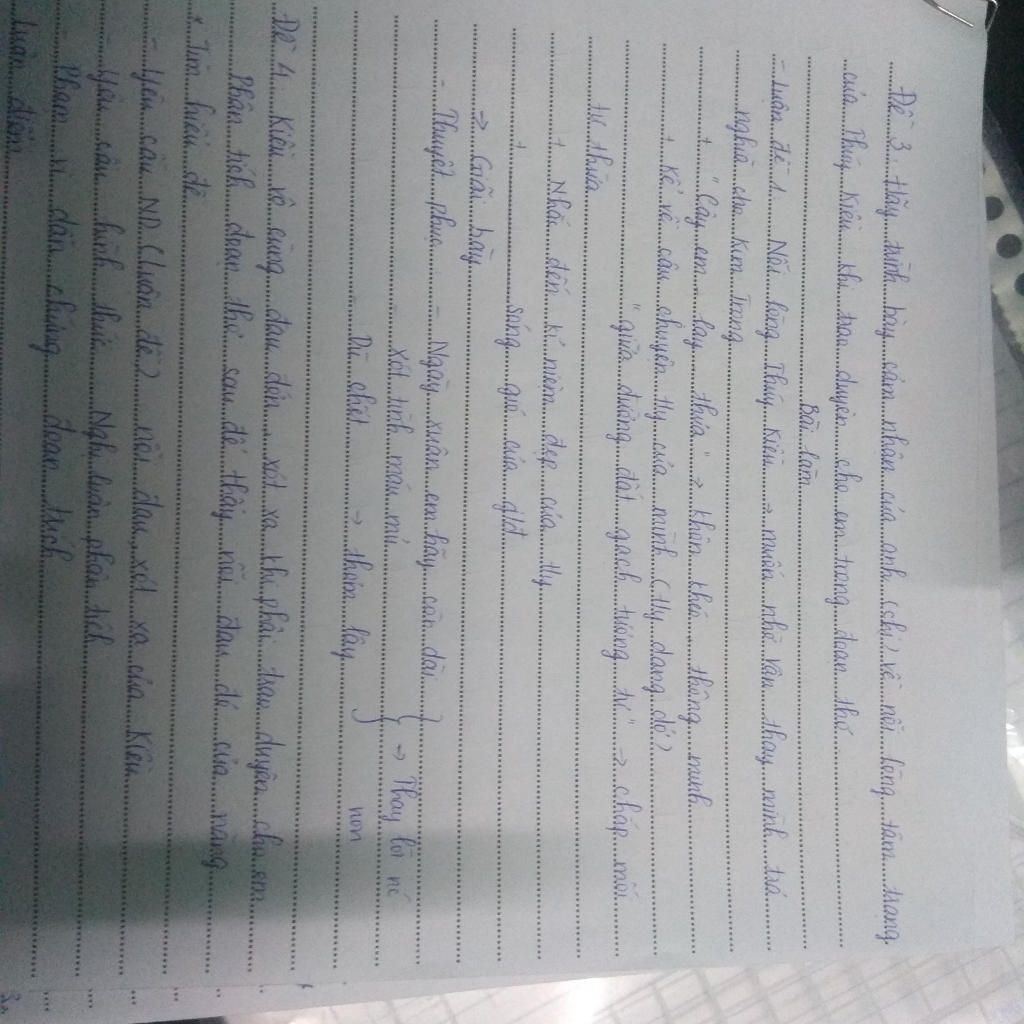 Đề 3. Hãy trình bày cảm nhận của anh (chị) về nỗi lòng tâm trạng
của Thúy Kiều khi trao duyên cho em trong đoạn thơ
Bài làm
- Luận đề 1. Nỗi lòng Thúy Kiều → muốn nhờ Vân thay mình trả
nghĩa cho Kim Trọng
+ "Cậy em lạy thưa" → khôn khéo thông minh
+ kể về câu chuyện ty của mình (ty dang dở)
"giữa đường đứt gánh tương tư" → chắp mối
tơ thừa
+ Nhắc đến kỉ niệm đẹp của ty
+ sóng gió của gđ
→ Giãi bày
- Thuyết phục - Ngày xuân em hãy còn dài
- xót tình máu mủ } → Thay lời nc
- Dù chết → thơm lây non
Đề 4. Kiều vô cùng đau đớn, xót xa khi phải trao duyên cho em
Phân tích đoạn thơ sau để thấy nỗi đau đó của nàng
* Tìm hiểu đề
- Yêu cầu ND (luận đề) nỗi đau, xót xa của Kiều
- Yêu cầu hình thức Nghị luận phân tích
- Phạm vi dẫn chứng đoạn trích
luận điểm